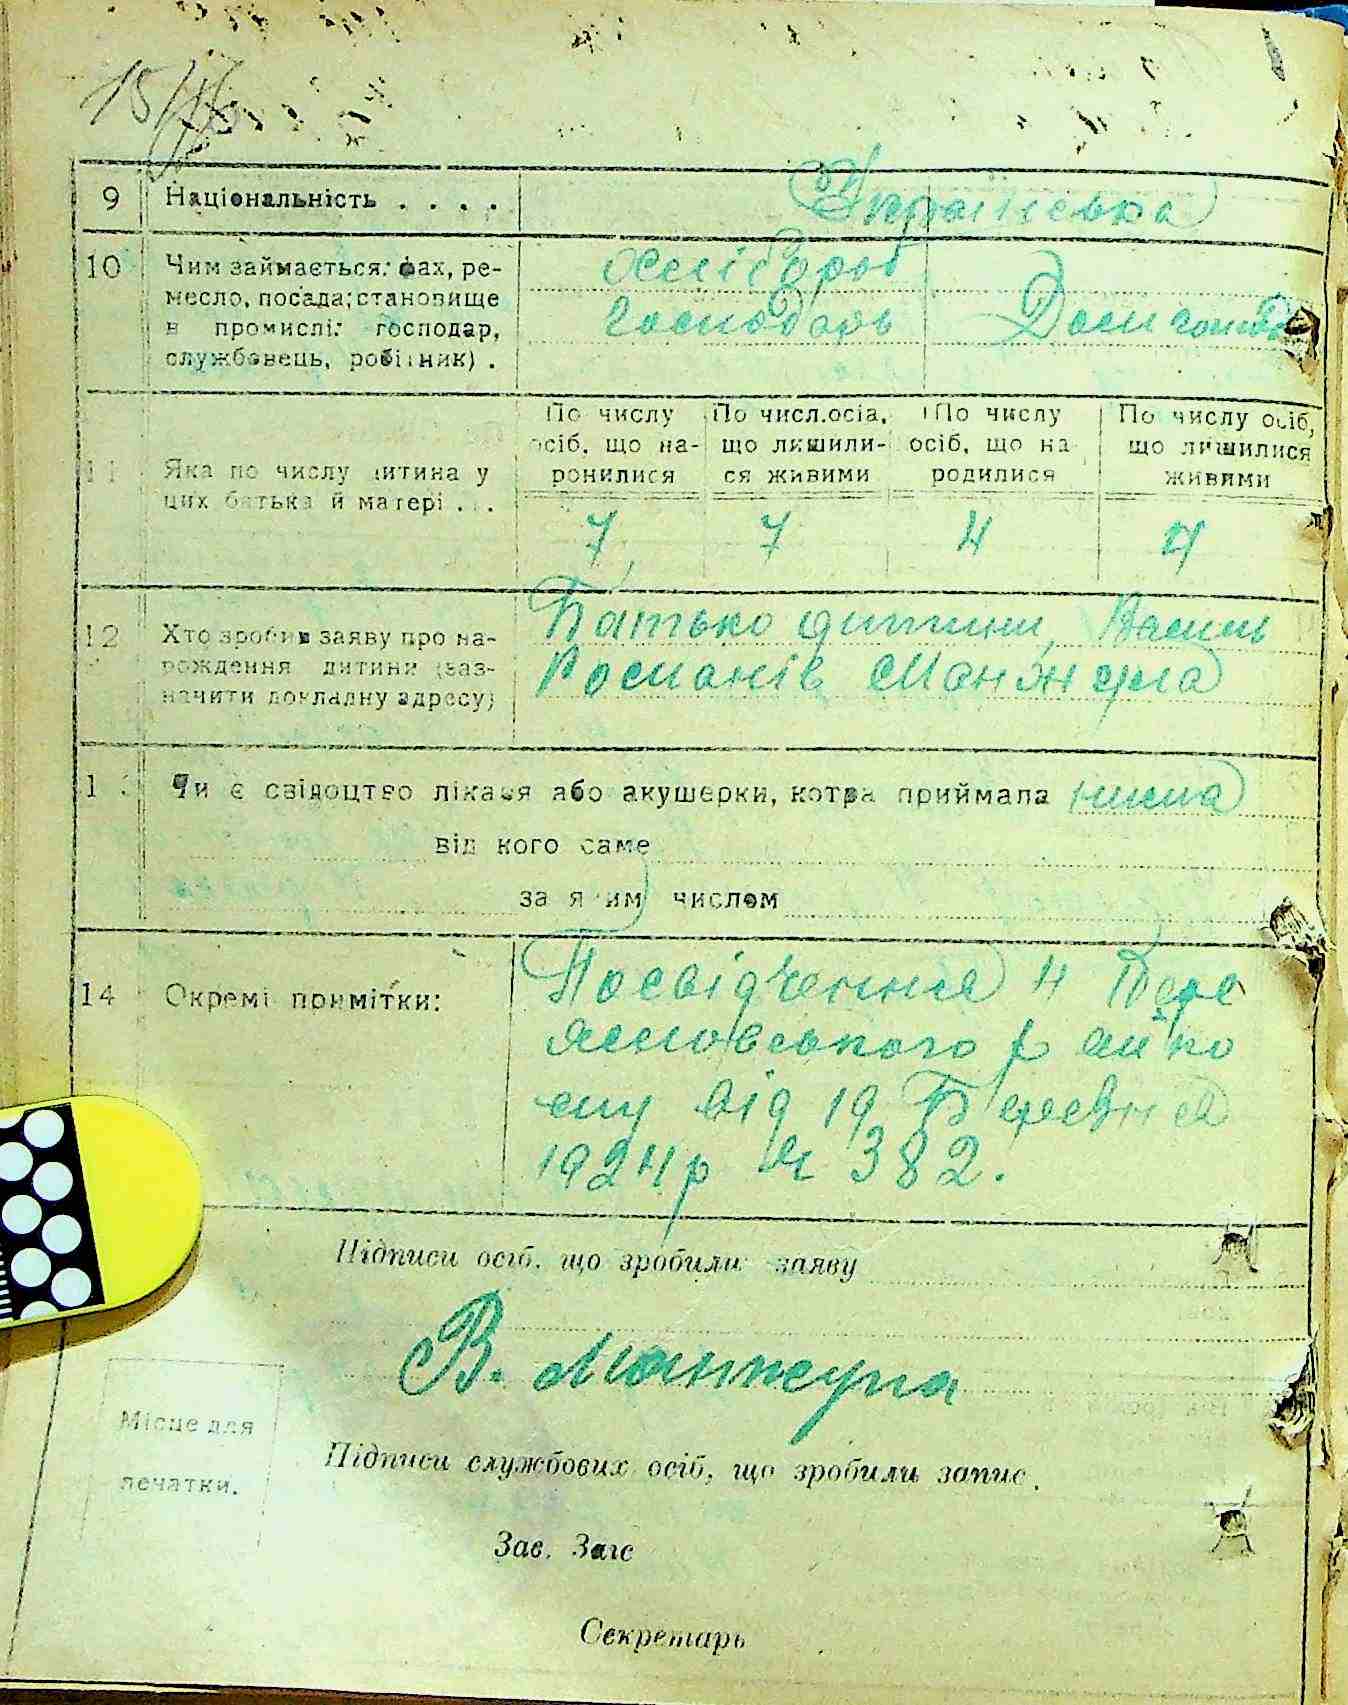 15/II
9 Національність . . . . Українська
10 Чим займається: фах, ре- Хлібороб
месло, посада; становище
в промислі: господар, Господарь Домогоспод
службовець, робітник) .
По числу По числ.осіа, По числу По числу осіб,
осіб, що на- що лишили- осіб, що на- що лишилися
ронилися ся живими родилися живими
11 Яка по числу дитина у
цих батька й матері . . . 7 7 4 4
12 Хто зробив заяву про на- Батько дитини, Василь
рождення дитини (заз- Романів Манжула
начити докладну адресу)
13 Чи є свідоцтво лікаря або акушерки, котра приймала нима
від кого саме
за яким числом
14 Окремі примітки: Посвідчення Н Бере
відс
ому від 19 Березня
1924р № 382.
Підписи осіб, що зробили заяву
В. Манжула
Місце для
печатки.
Підписи службових осіб, що зробили запис.
Зав. Загс
Секретарь